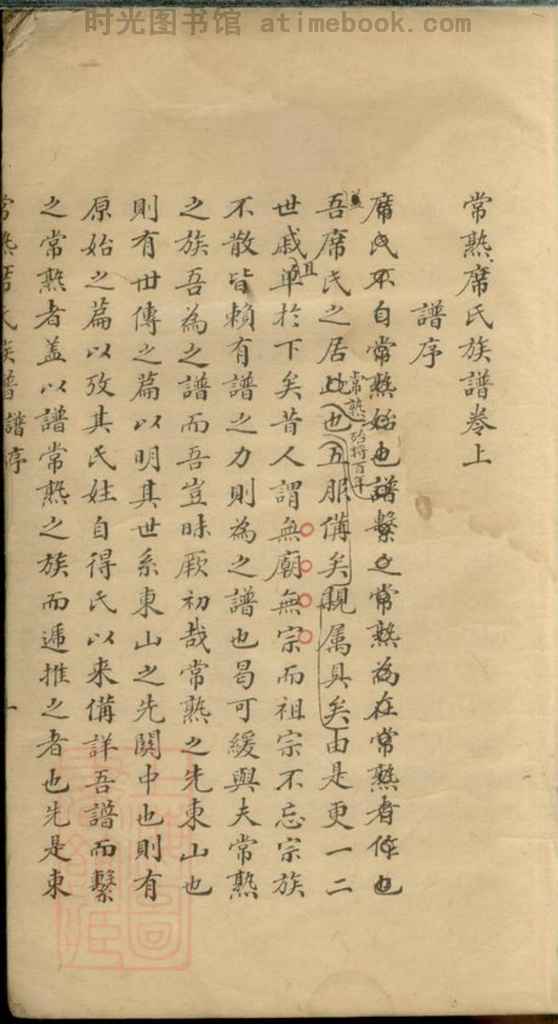 时光图书馆 atimebook.com
常熟席氏族譜卷上
譜序
席氏不自常熟始也譜繫之常熟為在常熟者作也
吾席氏之居此也五服備矣親属具矣由是更一二
常熟殆将百年
世戚單於下矣昔人謂無廟無宗而祖宗不忘宗族
不散皆賴有譜之力則為之譜也曷可緩與夫常熟
之族吾為之譜而吾豈昧厥初哉常熟之先東山也
則有世傳之篇以明其世系東山之先關中也則有
原始之篇以攷其氏姓自得氏以来備詳吾譜而繫
之常熟者盖以譜常熟之族而遞推之者也先是東
常熟席氏族譜 譜序 一